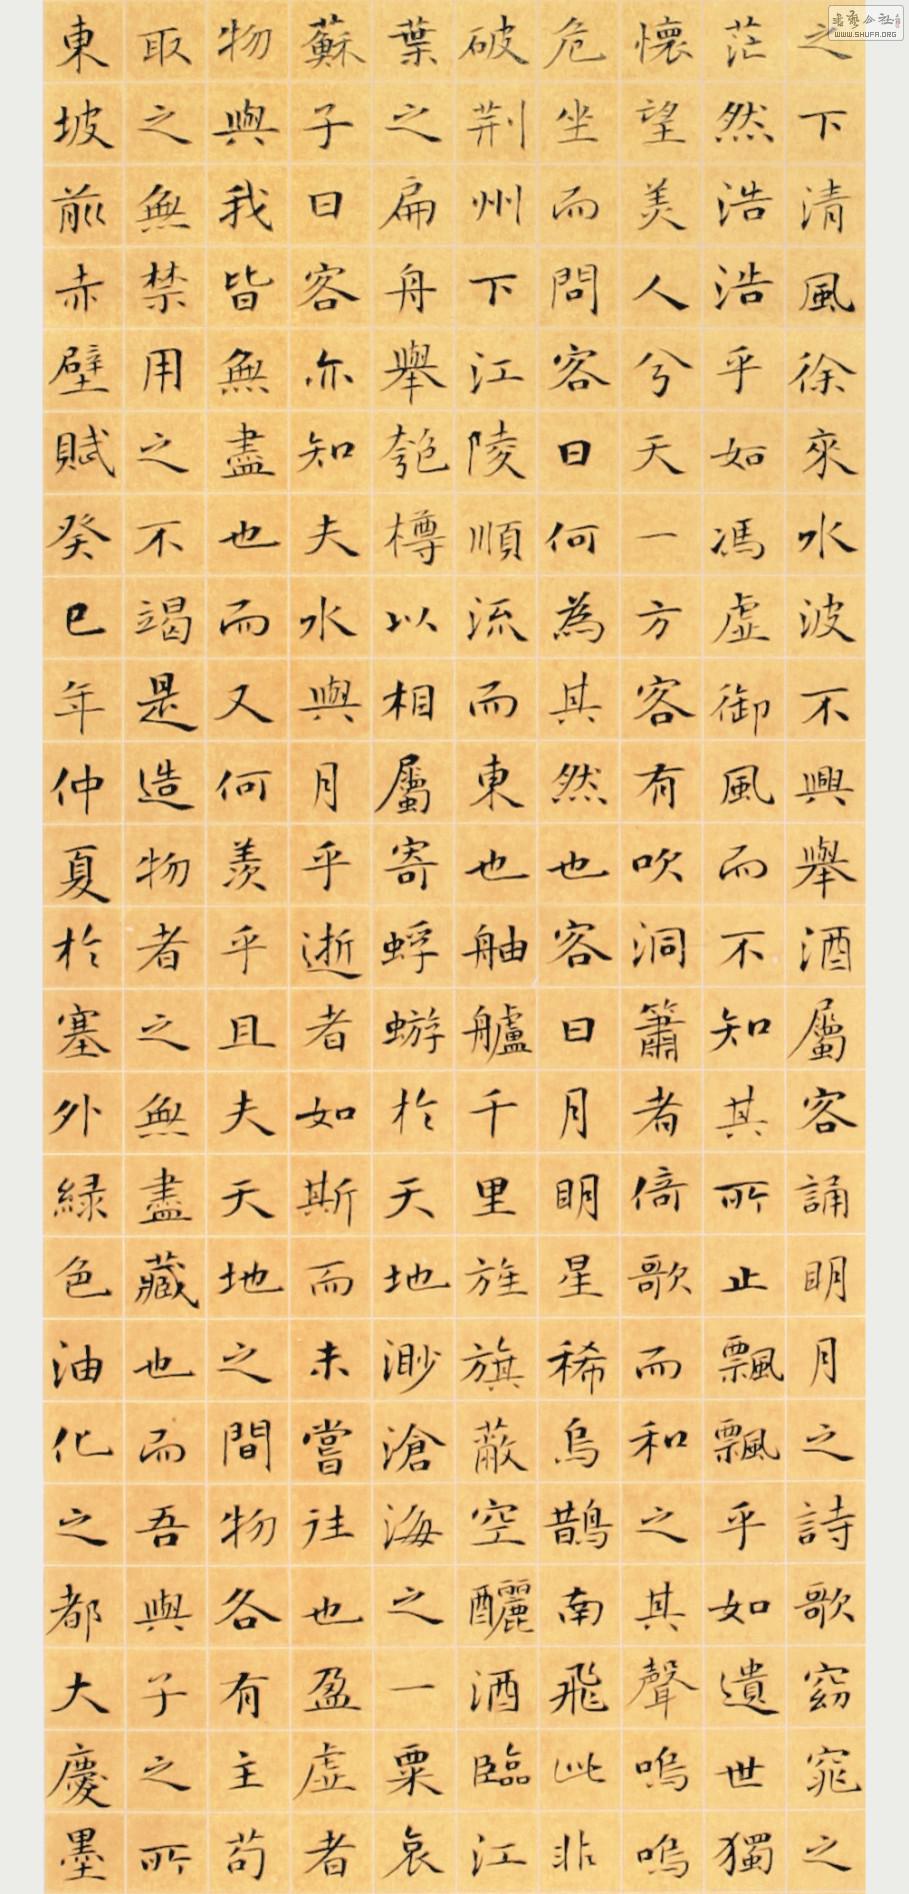 之下清風徐來水波不興舉酒屬客誦明月之詩歌窈窕之
茫然浩浩乎如馮虛御風而不知其所止飄飄乎如遺世獨
懷望美人兮天一方客有吹洞簫者倚歌而和之其聲嗚嗚
危坐而問客曰何為其然也客曰月明星稀烏鵲南飛此非
破荆州下江陵順流而東也舳艫千里旌旗蔽空釃酒臨江
葉之扁舟舉匏樽以相屬寄蜉蝣於天地渺滄海之一粟哀
蘇子曰客亦知夫水與月乎逝者如斯而未嘗往也盈虛者
物與我皆無盡也而又何羨乎且夫天地之間物各有主苟
取之無禁用之不竭是造物者之無盡藏也而吾與子之所
東坡前赤壁賦癸巳年仲夏於塞外綠色油化之都大慶墨
書藝公社
WWW.SHUFA.ORG